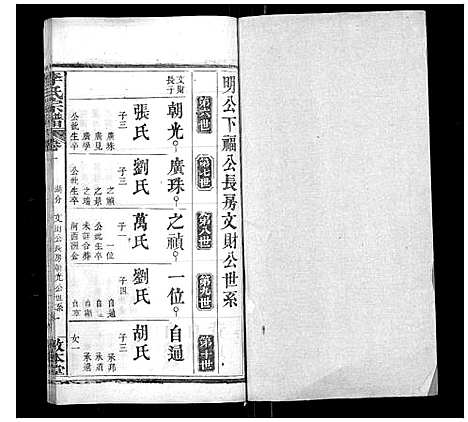 明公下福公長房文財公世系
第六世
第七世
第八世
第九世
第十世
文財長子
朝光
廣珠
之禎
一位
自通
張氏
子三
廣珠
廣見
廣學
公妣生卒
劉氏
子三
之禎
之景
之瑞
公妣生卒
萬氏
子
一位
公妣生卒
未詳合葬
河西洲金
劉氏
子四
自通
胡氏
子三
承邦
女一
李氏宗譜
卷
敦本堂